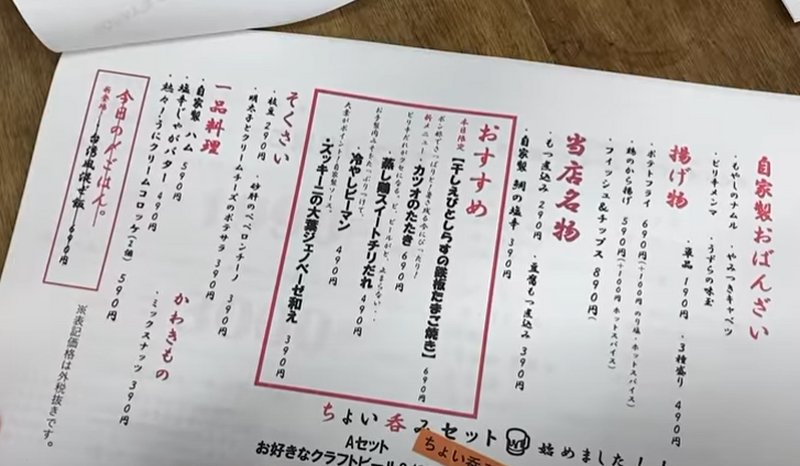 自家製おばんざい
・もやしのナムル ・やみつきキャベツ
・ピリ辛メンマ ・うずらの味玉
・単品 190円 ・3種盛り 490円
揚げ物
・ポテトフライ 690円(+100円 のり塩・ホットスパイス)
・鶏のから揚げ 590円(+100円 ホットスパイス)
・フィッシュ&チップス 890円(
当店名物
・もつ煮込み 290円 ・豆腐もつ煮込み 390円
・自家製 鯛の塩辛 390円
おすすめ
本日限定 【干しえびとしらすの鉄板たまご焼き】 690円
ポン酢でさっぱりと!暑さ残る今にぴったり!
新メニュー ・カツオのたたき 690円
ピリ辛だれがクセになる。ビールがと、止まらない・・
・蒸し鶏スイートチリだれ 490円
お手製肉みそをたっぷりつけて、
・冷やしピーマン 490円
大葉がポイント!自家製ソース。
・ズッキーニの大葉ジェノベーゼ和え 390円
そくさい
・枝豆 290円 ・砂肝のペペロンチーノ 390円
・明太子とクリームチーズのポテサラ 390円
一品料理
・自家製 ハム 590円
・塩辛じゃがバター 490円
・熱々!うにクリームコロッケ(2個) 590円
かわきもの
・ミックスナッツ 390円
今日の〆ごはん。
新登場
台湾風混ぜ飯 690円
※表記価格は外税抜きです。
ちょい呑みセット 始めました!!
Aセット
ちょい呑
お好きなクラフトビール